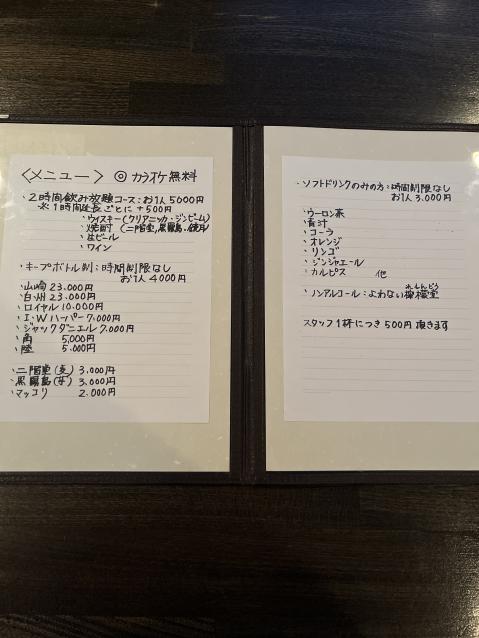 〈メニュー〉 ◎ カラオケ無料
・2時間飲み放題コース：お1人 5000円
※ 1時間延長ごとに + 500円
・ウイスキー(クリアニッカ・ジンビーム)
・焼酎 (二階堂,黒霧島・使用)
・生ビール
・ワイン
・キープボトル制：時間制限なし
お1人 4000円
・山崎 23.000円
・白州 23.000円
・ロイヤル 10.000円
・I・Wハーパー 7.000円
・ジャックダニエル 7.000円
・角 5,000円
・陸 5.000円
・二階堂(麦) 3,000円
・黒霧島(芋) 3,000円
・マッコリ 2.000円
・ソフトドリンクのみの方：時間制限なし
お1人 3.000円
・ウーロン茶
・青汁
・コーラ
・オレンジ
・リンゴ
・ジンジャエール
・カルピス 他
・ノンアルコール：よわない檸檬堂
れもんどう
スタッフ1杯につき 500円 頂きます